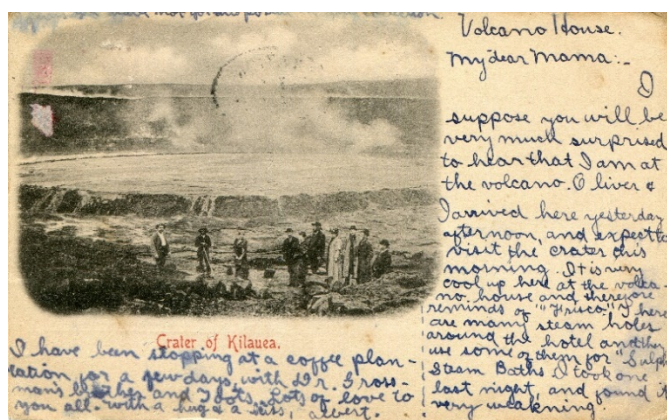 Volcano House.
My dear Mama:-
I
suppose you will be
very much surprised
to hear that I am at
the volcano. Oliver &
I arrived here yesterday
afternoon, and expect to
visit the crater this
morning. It is very
cool up here at the volca-
no house and therefore
reminds of "Frisco." There
are many steam holes
around the hotel and they
use some of them for "Sulph
Steam Baths I took one
last night, and found it
very weakning
Crater of Kilauea.
I have been stopping at a coffee plan-
tation for a few days, with Dr. Gross-
man's brother, and I Lots of love to
you all. with a hug & a kiss, albert.
have not